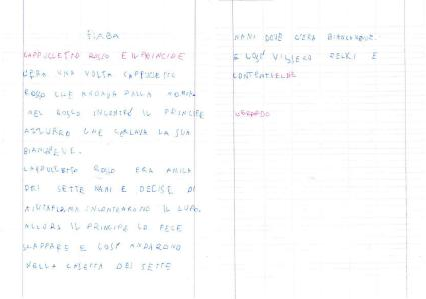 FIABA
CAPPUCCETTO ROSSO E IL PRINCIPE
C'ERA UNA VOLTA CAPPUCCETTO
ROSSO CHE ANDAVA DALLA NONNA.
NEL BOSCO INCONTRÒ IL PRINCIPE
AZZURRO CHE CERCAVA LA SUA
BIANCANEVE.
CAPPUCCETTO ROSSO ERA AMICA
DEI SETTE NANI E DECISE DI
AIUTARLO MA INCONTRARONO IL LUPO.
ALLORA IL PRINCIPE LO FECE
SCAPPARE E COSÌ ANDARONO
NELLA CASETTA DEI SETTE
NANI DOVE C'ERA BIANCANEVE.
E COSÌ VISSERO FELICI E